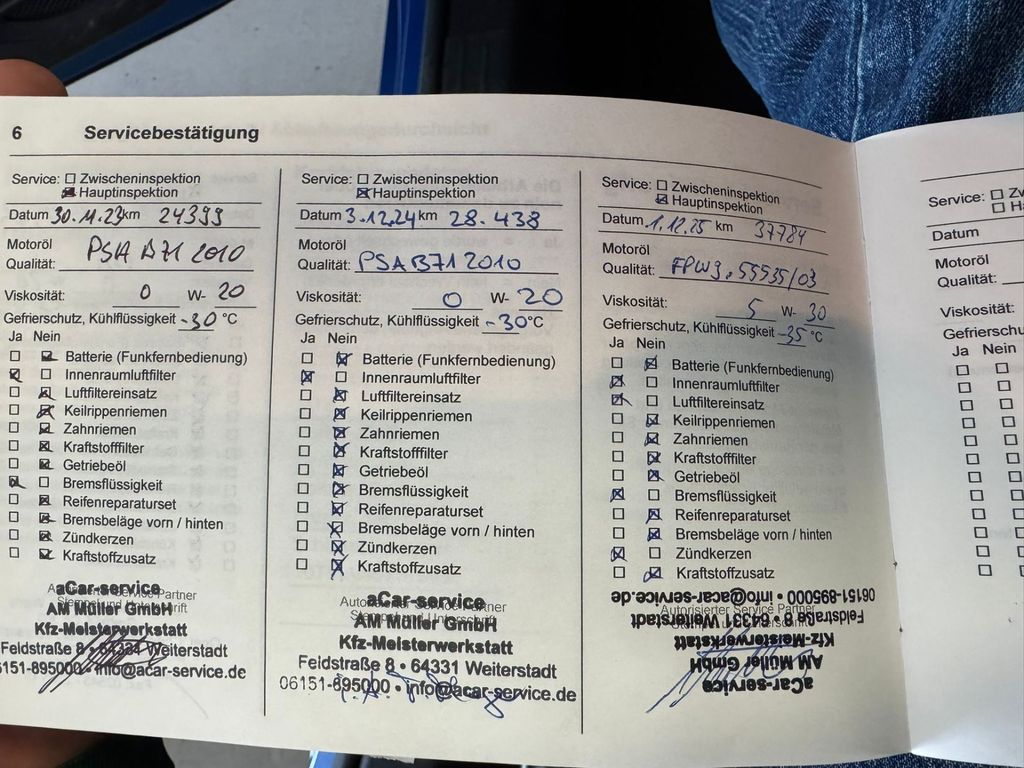 6 Servicebestätigung
Service: ☐ Zwischeninspektion
☒ Hauptinspektion
Datum 30.11.23 km 24399
Motoröl
Qualität: PSA B71 2010
Viskosität: 0 W- 20
Gefrierschutz, Kühlflüssigkeit -30 °C
Ja Nein
☐ ☒ Batterie (Funkfernbedienung)
☒ ☐ Innenraumluftfilter
☐ ☒ Luftfiltereinsatz
☐ ☒ Keilrippenriemen
☐ ☒ Zahnriemen
☐ ☒ Kraftstofffilter
☐ ☒ Getriebeöl
☒ ☐ Bremsflüssigkeit
☐ ☒ Reifenreparaturset
☐ ☒ Bremsbeläge vorn / hinten
☐ ☒ Zündkerzen
☐ ☒ Kraftstoffzusatz
aCar-service
AM Müller GmbH
Kfz-Meisterwerkstatt
Feldstraße 8 • 64331 Weiterstadt
06151-895000 • info@acar-service.de
Service: ☐ Zwischeninspektion
☒ Hauptinspektion
Datum 3.12.24 km 28.438
Motoröl
Qualität: PSA B71 2010
Viskosität: 0 W- 20
Gefrierschutz, Kühlflüssigkeit -30 °C
Ja Nein
☐ ☒ Batterie (Funkfernbedienung)
☒ ☐ Innenraumluftfilter
☐ ☒ Luftfiltereinsatz
☐ ☒ Keilrippenriemen
☐ ☒ Zahnriemen
☐ ☒ Kraftstofffilter
☐ ☒ Getriebeöl
☐ ☒ Bremsflüssigkeit
☐ ☒ Reifenreparaturset
☐ ☒ Bremsbeläge vorn / hinten
☐ ☒ Zündkerzen
☐ ☒ Kraftstoffzusatz
Autorisierter Service Partner
aCar-service
AM Müller GmbH
Kfz-Meisterwerkstatt
Feldstraße 8 • 64331 Weiterstadt
06151-895000 • info@acar-service.de
Service: ☐ Zwischeninspektion
☒ Hauptinspektion
Datum 1.12.25 km 37784
Motoröl
Qualität: FPW9.55535/03
Viskosität: 5 W- 30
Gefrierschutz, Kühlflüssigkeit -35 °C
Ja Nein
☐ ☒ Batterie (Funkfernbedienung)
☒ ☐ Innenraumluftfilter
☒ ☐ Luftfiltereinsatz
☐ ☒ Keilrippenriemen
☐ ☒ Zahnriemen
☐ ☒ Kraftstofffilter
☐ ☒ Getriebeöl
☒ ☐ Bremsflüssigkeit
☐ ☒ Reifenreparaturset
☐ ☒ Bremsbeläge vorn / hinten
☒ ☐ Zündkerzen
☐ ☒ Kraftstoffzusatz
Autorisierter Service Partner
aCar-service
AM Müller GmbH
Kfz-Meisterwerkstatt
Feldstraße 8 • 64331 Weiterstadt
06151-895000 • info@acar-service.de
Service: ☐
☐
Datum
Motoröl
Qualität:
Viskosität:
Ja Nein